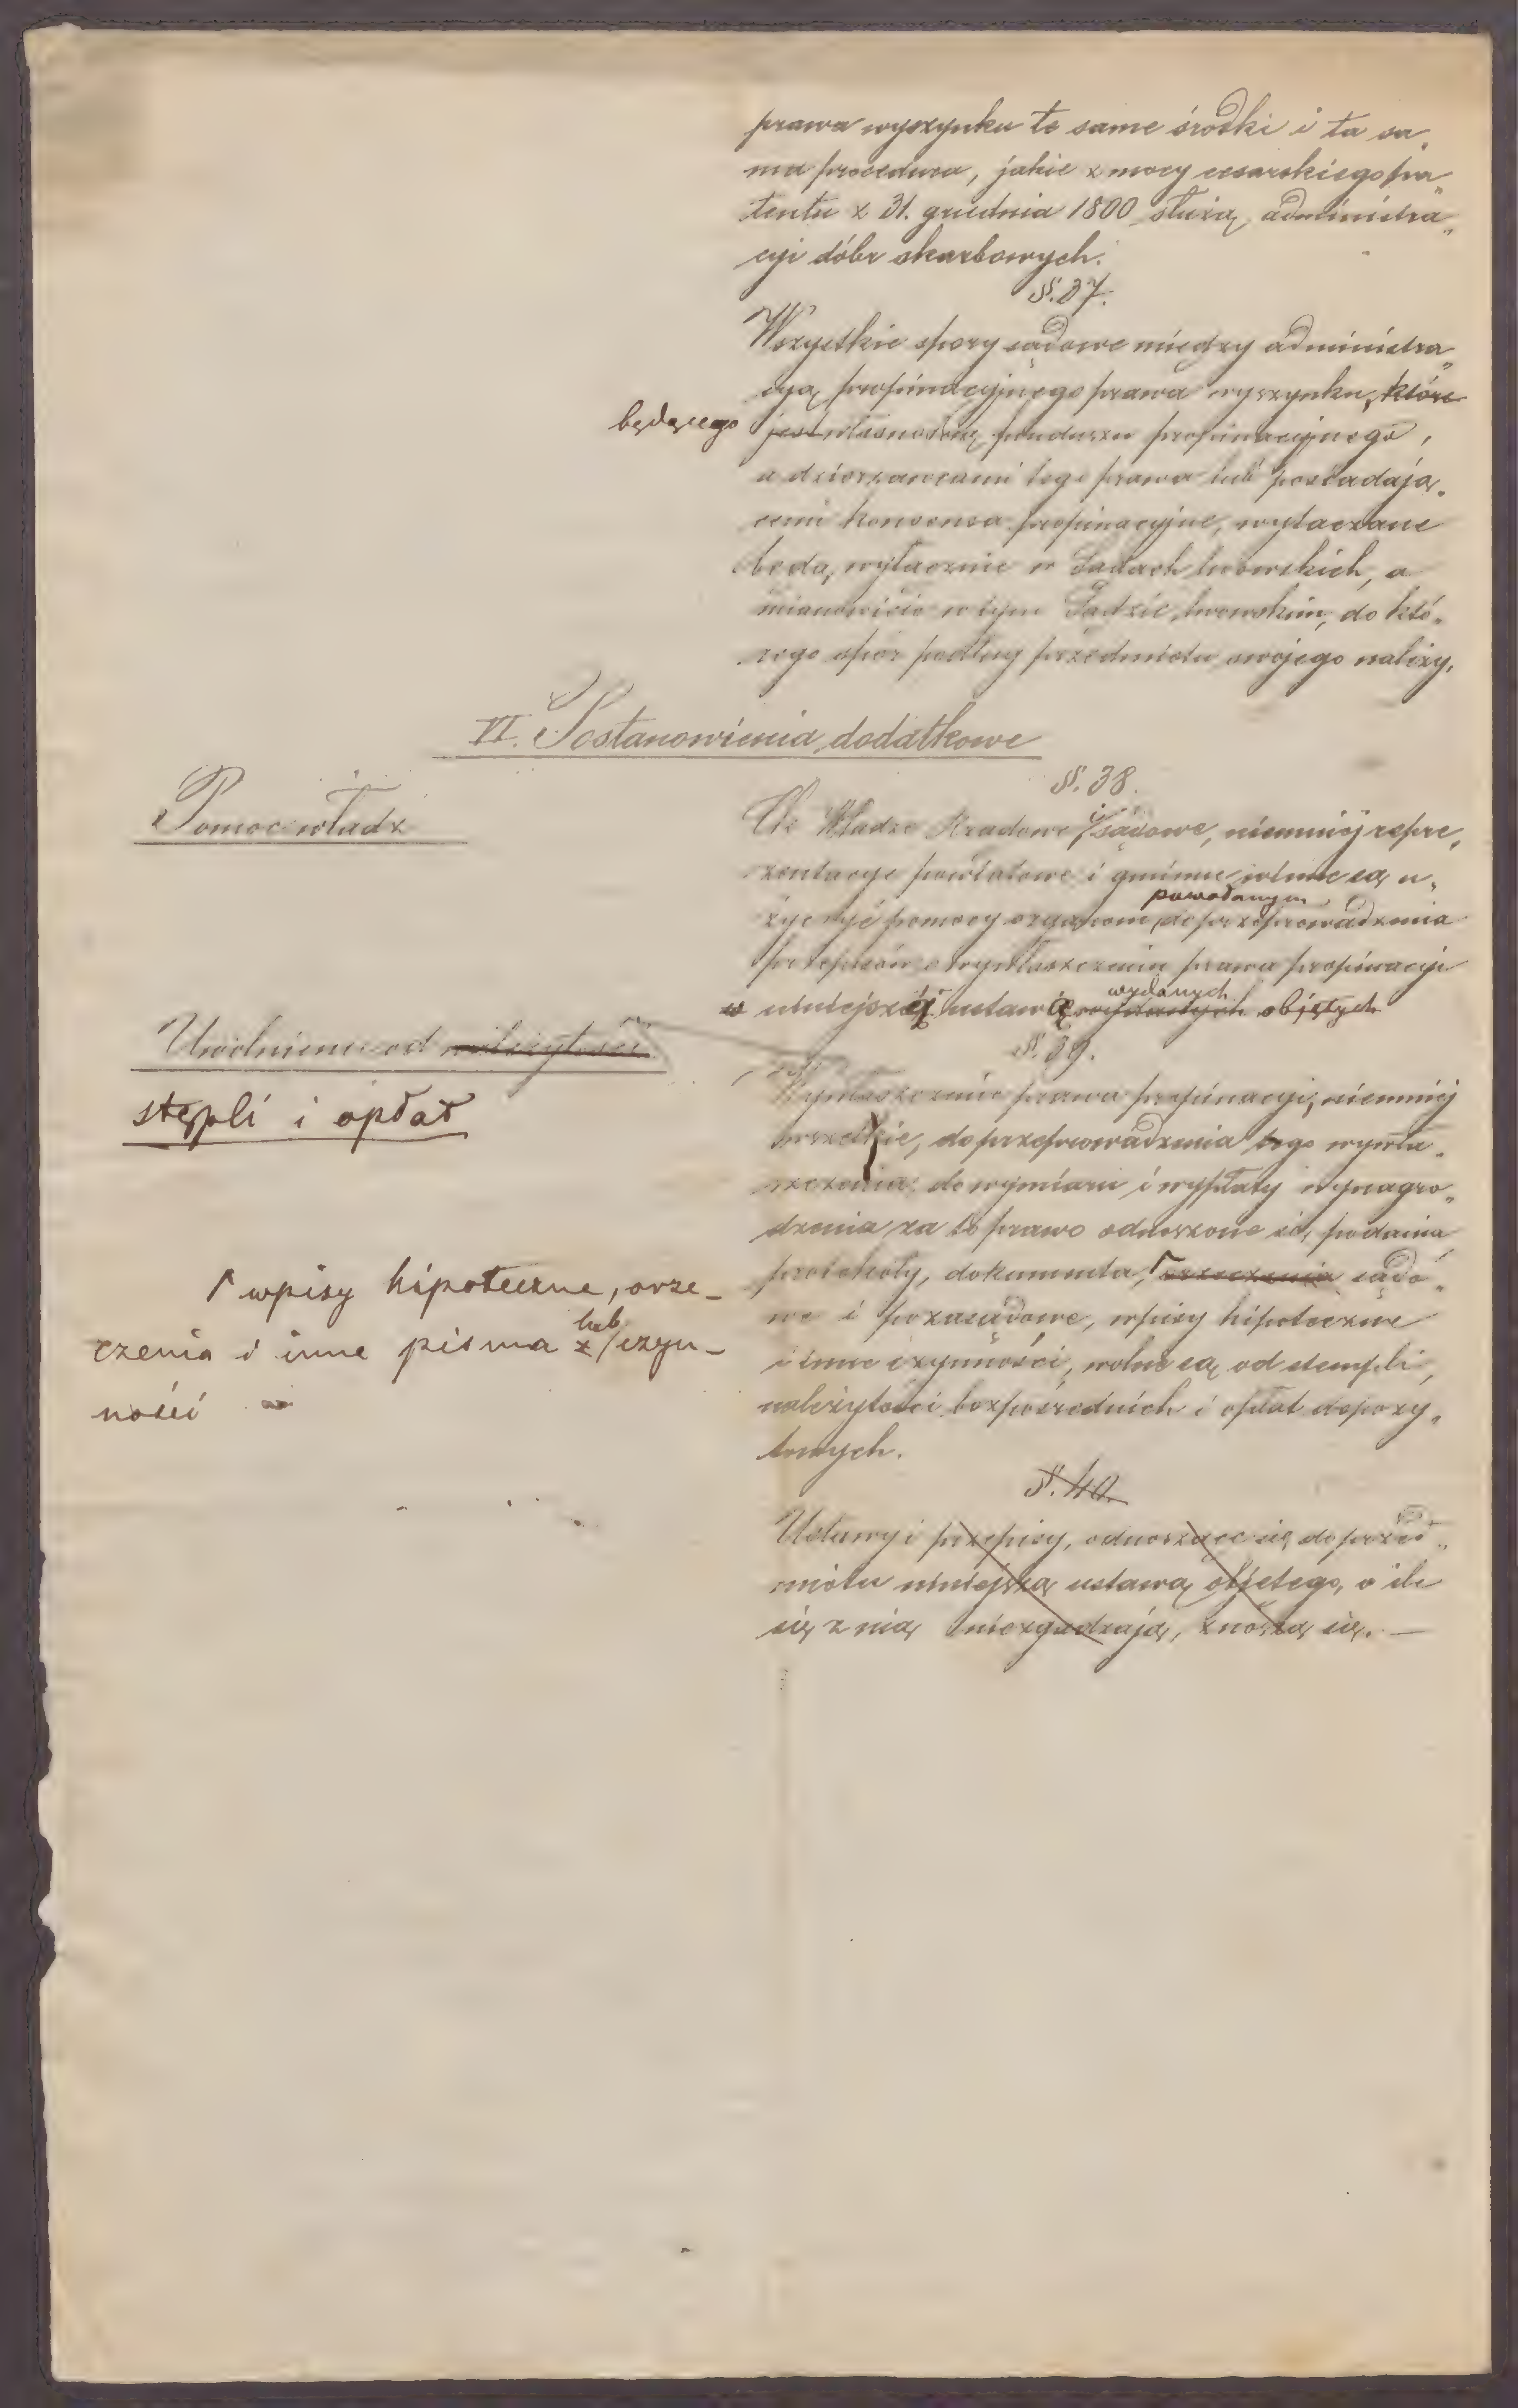 prawa wyszynku te same środki i ta sa„
ma procedura, jakie z mocy cesarskiego pa„
tentu z 31. grudnia 1800 służą administra„
cyi dóbr skarbowych.
§. 37.
Wszystkie spory sądowe między administra„
cyą propinacyjnego prawa wyszynku, które
będącego
jest własnością funduszu propinacyjnego,
a dzierżawcami tego prawa lub posiadają„
cemi konsensa propinacyjne, wytaczane
będą wyłącznie w Sądach lwowskich, a
mianowicie w tym Sądzie lwowskim, do któ„
rego spór podług przedmiotu swojego należy.
VI. Postanowienia dodatkowe
Pomoc władz
§. 38.
Władze Rządowe i sądowe, niemniej repre„
zentacye powiatowe i gminne winne są u„
powołanym
życzyć pomocy organom do przeprowadzenia
przepisów o wywłaszczeniu prawa propinacyi
wydanych
w niniejszej ustawie wydanych objętych
Uwolnienie od należytości
stępli i opłat
§. 39.
Wywłaszczenie prawa propinacyi, niemniej
wszelkie, do przeprowadzenia tego wywła„
szczenia, do wymiaru i wypłaty wynagro„
dzenia za to prawo odnoszone się podania
protokoły, dokumenta, orzeczenia sądo„
we i pozasądowe, wpisy hipoteczne
i inne czynności, wolne są od stempli,
należytości bezpośrednich i opłat depozy„
towych.
wpisy hipoteczne, orze–
czenia i inne pisma z lub czyn–
ności
§. 40.
Ustawy i przepisy, odnoszące się do przed„
miotu niniejszą ustawą objętego, o ile
się z nią nie zgadzają, znoszą się. —